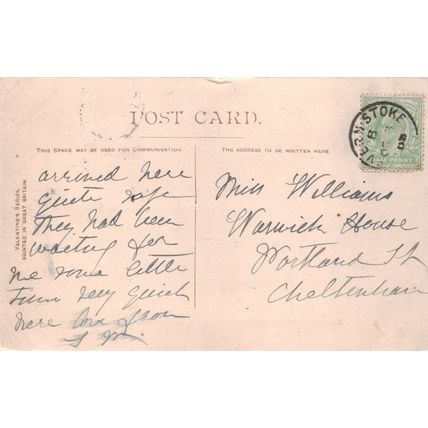 POST CARD.
THIS SPACE MAY BE USED FOR COMMUNICATION.
THE ADDRESS TO BE WRITTEN HERE
VALENTINE'S SERIES.
PRINTED IN GREAT BRITAIN.
arrived here
quite safe
they had been
waiting for
me some little
time very quiet
here love from
Miss Williams
Warwick House
Portland St
Cheltenham
VERN-STOKE